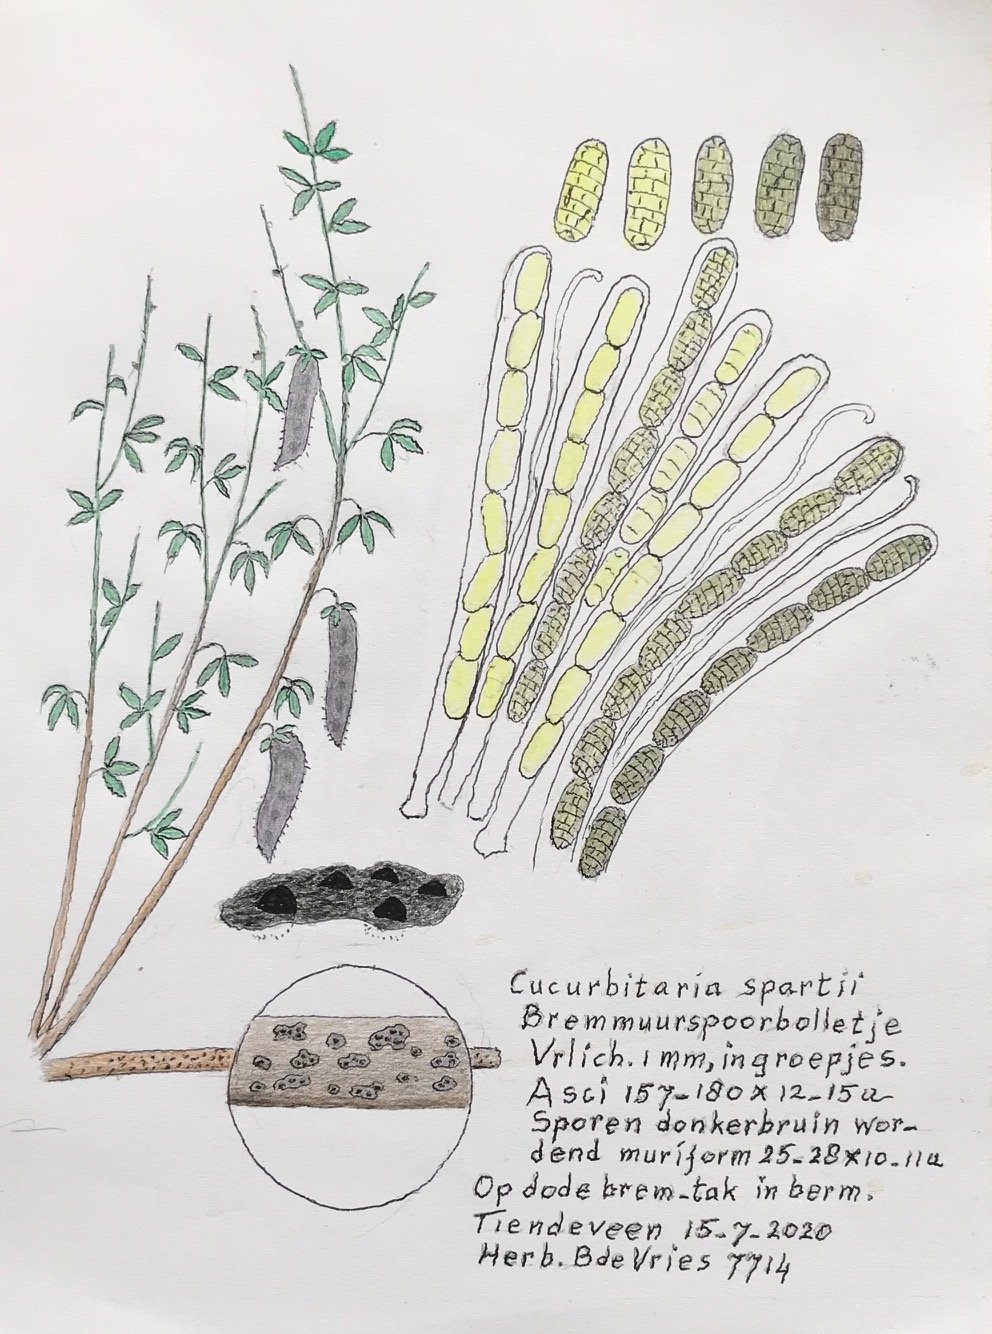 Cucurbitaria spartii
Bremmuurspoorbolletje
Vrlich. 1 mm, in groepjes.
Asci 157-180 x 12-15 u
Sporen donkerbruin wor-
dend muriform 25-28x10-11u
Op dode brem-tak in berm.
Tiendeveen 15-7-2020
Herb. B de Vries 7714